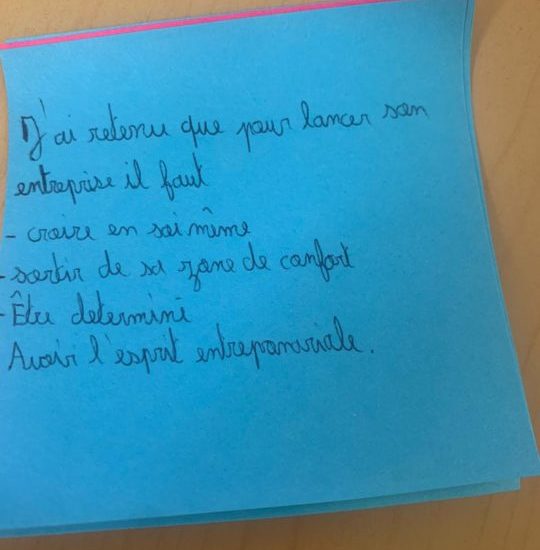 J'ai retenu que pour lancer son
entreprise il faut
- croire en soi même
- sortir de sa zone de confort
- Être determiné
Avoir l'esprit entreponuriale.